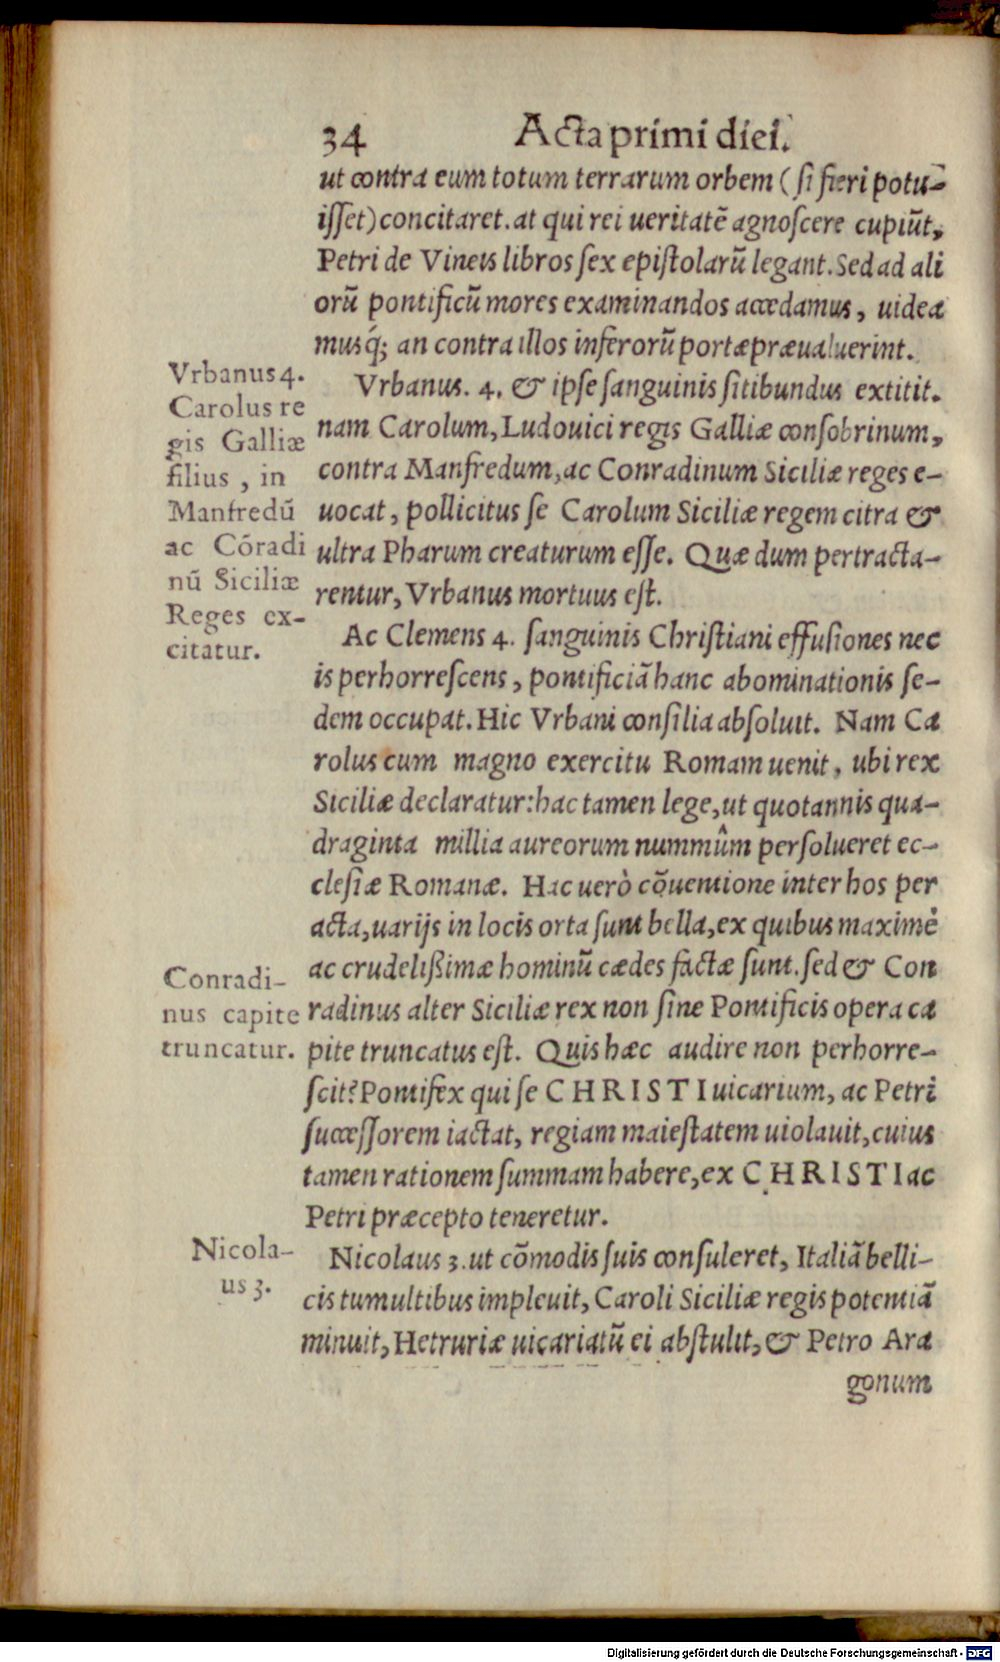 34 Acta primi diei.
ut contra eum totum terrarum orbem (si fieri potu-
isset) concitaret. at qui rei ueritatẽ agnoscere cupiũt,
Petri de Vineis libros sex epistolarũ legant. Sed ad ali
orũ pontificũ mores examinandos accedamus, uidea
musq́; an contra illos inferorũ portæ præualuerint.
Vrbanus 4.
Carolus re
gis Galliæ
filius, in
Manfredũ
ac Cõradi
nũ Siciliæ
Reges ex-
citatur.
Vrbanus. 4. & ipse sanguinis sitibundus extitit.
nam Carolum, Ludouici regis Galliæ consobrinum,
contra Manfredum, ac Conradinum Siciliæ reges e-
uocat, pollicitus se Carolum Siciliæ regem citra &
ultra Pharum creaturum esse. Quæ dum pertracta-
rentur, Vrbanus mortuus est.
Ac Clemens 4. sanguinis Christiani effusiones nec
is perhorrescens, pontificiã hanc abominationis se-
dem occupat. Hic Vrbani consilia absoluit. Nam Ca
rolus cum magno exercitu Romam uenit, ubi rex
Siciliæ declaratur: hac tamen lege, ut quotannis qua-
draginta millia aureorum nummûm persolueret ec-
clesiæ Romanæ. Hac uerò cõuentione inter hos per
acta, uarijs in locis orta sunt bella, ex quibus maximè
ac crudelißimæ hominũ cædes factæ sunt. sed & Con
Conradi-
nus capite
truncatur.
radinus alter Siciliæ rex non sine Pontificis opera ca
pite truncatus est. Quis hæc audire non perhorre-
scit? Pontifex qui se CHRISTI uicarium, ac Petri
successorem iactat, regiam maiestatem uiolauit, cuius
tamen rationem summam habere, ex CHRISTI ac
Petri præcepto teneretur.
Nicola-
us 3.
Nicolaus 3. ut cõmodis suis consuleret, Italiã belli-
cis tumultibus impleuit, Caroli Siciliæ regis potentiã
minuit, Hetruriæ uicariatũ ei abstulit, & Petro Ara
gonum
Digitalisierung gefördert durch die Deutsche Forschungsgemeinschaft - DFG